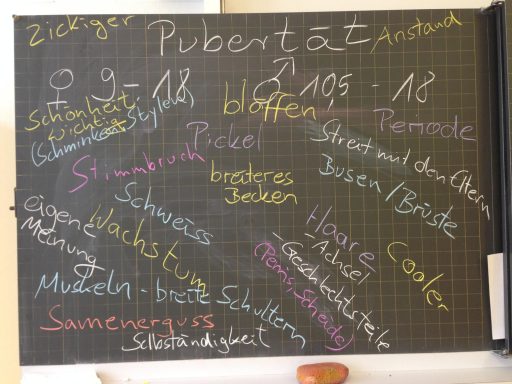 Zickiger
Pubertät
Anstand
♀ 9-18
♂ 10,5 - 18
Schönheit
wichtig
(Schminken, Stylen)
bloffen
Periode
Pickel
Streit mit den Eltern
Stimmbruch
breiteres
Becken
Busen / Brüste
Schweiss
eigene
Meinung
Wachstum
Haare
-Achsel
-Geschlechtsteile
(Penis, Scheide)
Cooler
Muskeln - breite Schultern
Samenerguss
Selbständigkeit